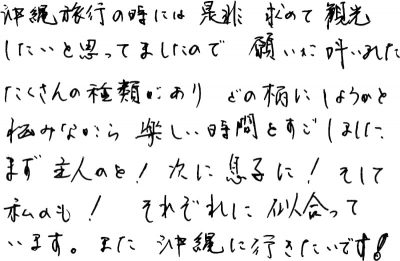 沖縄旅行の時には是非 求めて観光
したいと思ってましたので 願いが叶いました
たくさんの種類があり どの柄にしようかと
悩みながら 楽しい時間をすごしました、
まず主人のを！次に息子に！そして
私のも！それぞれに似合って
います。また沖縄に行きたいです!